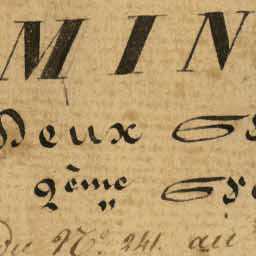 MIN
Deux
2ème
du N° 241. au